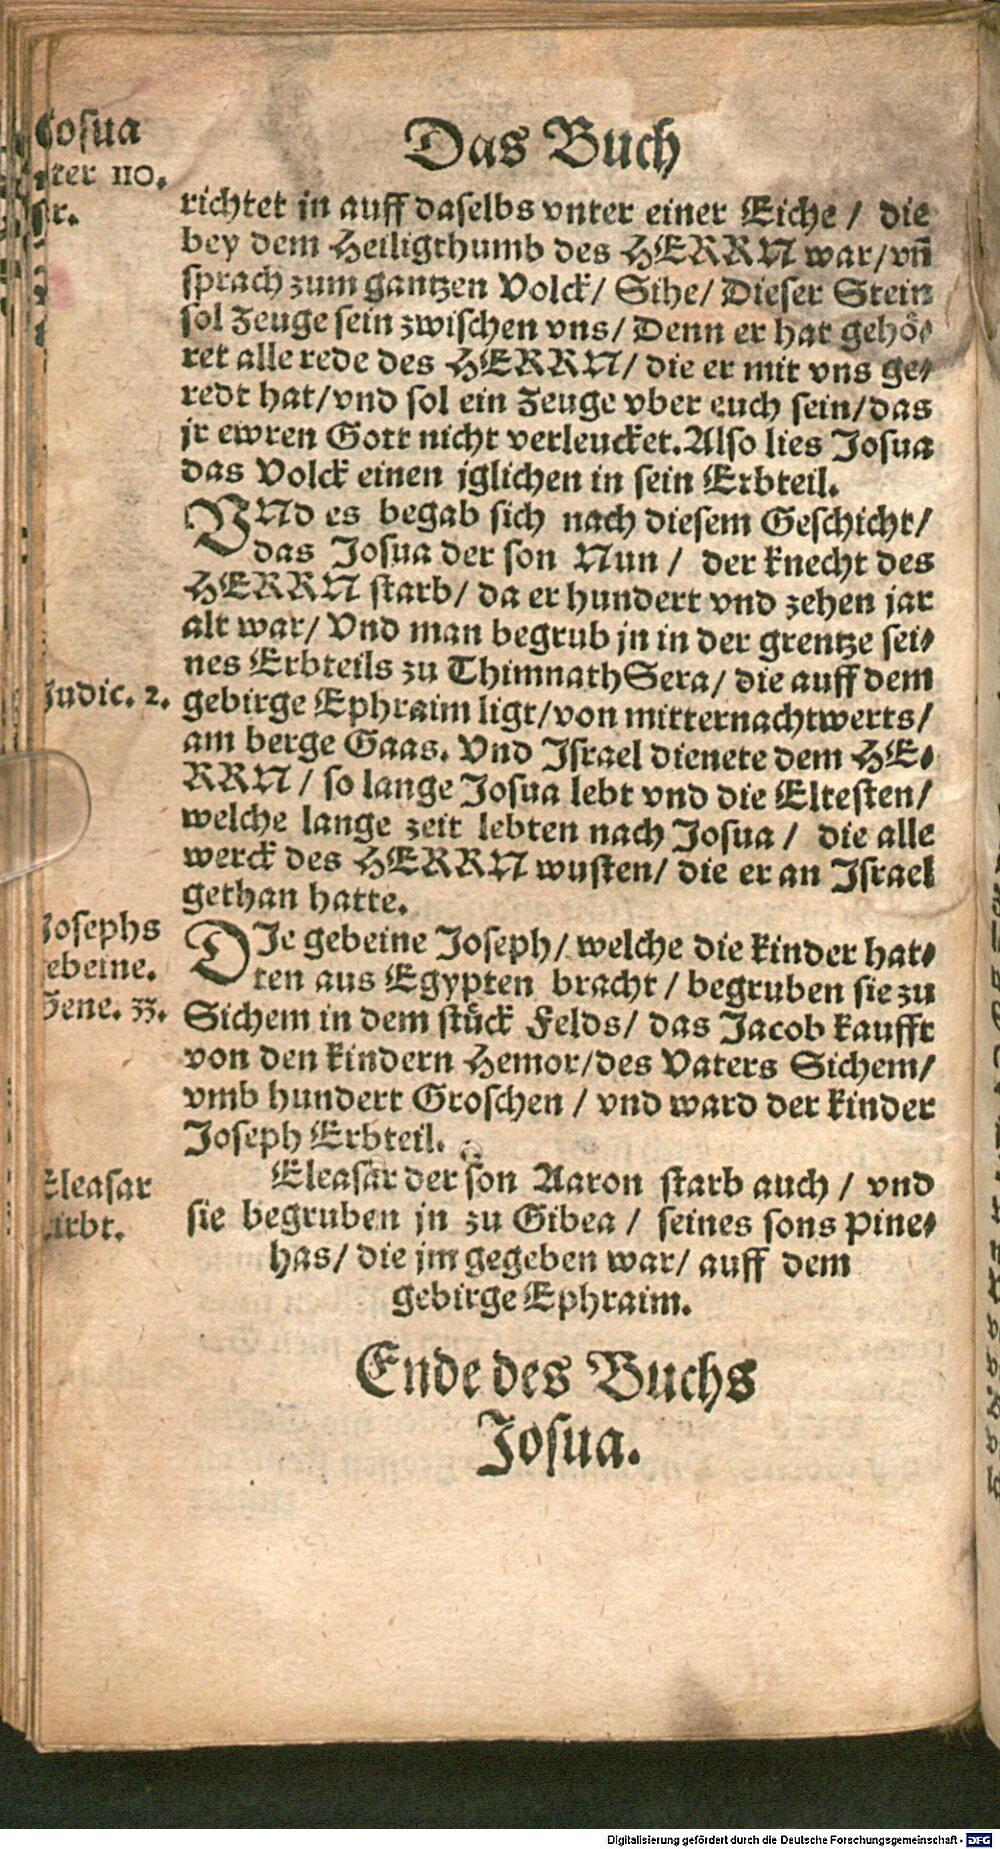 Das Buch
Josua
alter 110.
jar.
richtet jn auff daselbs vnter einer Eiche / die
bey dem Heiligthumb des HERRN war / vñ
sprach zum gantzen Volck / Sihe / Dieser Stein
sol Zeuge sein zwischen vns / Denn er hat gehö⸗
ret alle rede des HERRN / die er mit vns ge⸗
redt hat / vnd sol ein Zeuge vber euch sein / das
jr ewren Gott nicht verleucket. Also lies Josua
das Volck einen jglichen in sein Erbteil.
VNd es begab sich nach diesem Geschicht /
das Josua der son Nun / der knecht des
HERRN starb / da er hundert vnd zehen jar
alt war / Vnd man begrub jn in der grentze sei⸗
nes Erbteils zu ThimnathSera / die auff dem
Judic. 2.
gebirge Ephraim ligt / von mitternachtwerts /
am berge Gaas. Vnd Israel dienete dem HE⸗
RRN / so lange Josua lebt vnd die Eltesten /
welche lange zeit lebten nach Josua / die alle
werck des HERRN wusten / die er an Israel
gethan hatte.
Josephs
gebeine.
Gene. 33.
DJe gebeine Joseph / welche die kinder hat⸗
ten aus Egypten bracht / begruben sie zu
Sichem in dem stück Felds / das Jacob kaufft
von den kindern Hemor / des Vaters Sichem /
vmb hundert Groschen / vnd ward der kinder
Joseph Erbteil.
Eleasar
stirbt.
Eleasar der son Aaron starb auch / vnd
sie begruben jn zu Gibea / seines sons Pine⸗
has / die jm gegeben war / auff dem
gebirge Ephraim.
Ende des Buchs
Josua.
Digitalisierung gefördert durch die Deutsche Forschungsgemeinschaft - DFG